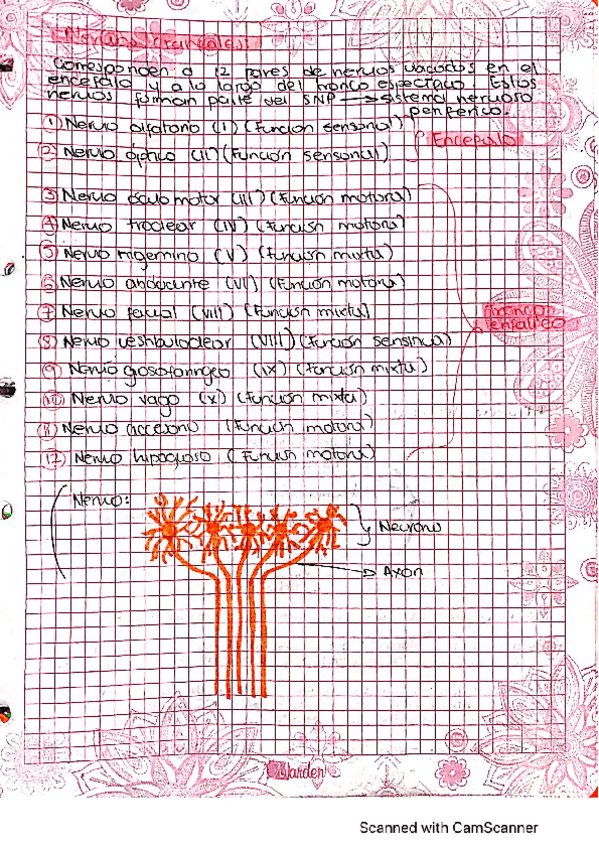 Nervios craneales:
Corresponden a 12 pares de nervios ubicados en el
encefalo y a lo largo del tronco espectaco. Estos
nervios forman parte del SNP → sistema nervioso
periferico.
① Nervio olfatorio (I) (Funcion sensorial)
② Nervio óptico (II) (Función sensorial)
Encefalo
③ Nervio oculo motor (III) (Función motora)
④ Nervio troclear (IV) (Función motora)
⑤ Nervio trigemino (V) (Función mixta)
⑥ Nervio abducente (VI) (Función motora)
⑦ Nervio facial (VIII) (Función mixta)
Tronco
⑧ Nervio vestibuloclear (VIII) (Función sensorial)
⑨ Nervio glosofaringeo (IX) (Función mixta)
⑩ Nervio vago (X) (Función mixta)
⑪ Nervio accesorio (Función motora)
⑫ Nervio hipogloso (Función motora)
Nervio:
Neurona
→ Axon
Scanned with CamScanner